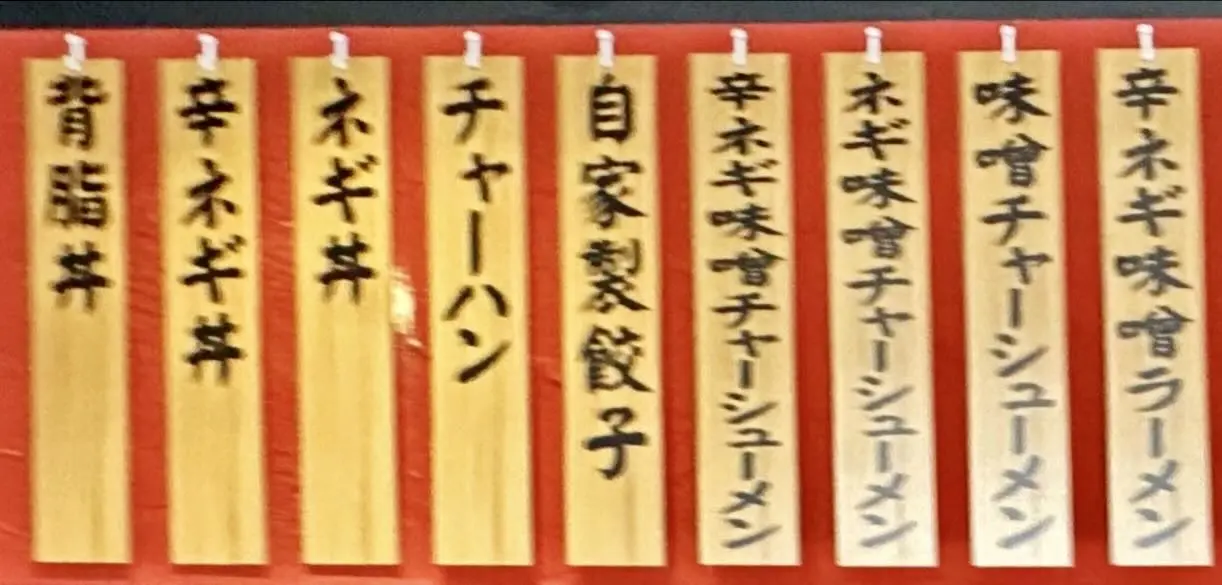 辛ネギ味噌ラーメン
味噌チャーシューメン
ネギ味噌チャーシューメン
辛ネギ味噌チャーシューメン
自家製餃子
チャーハン
ネギ丼
辛ネギ丼
背脂丼